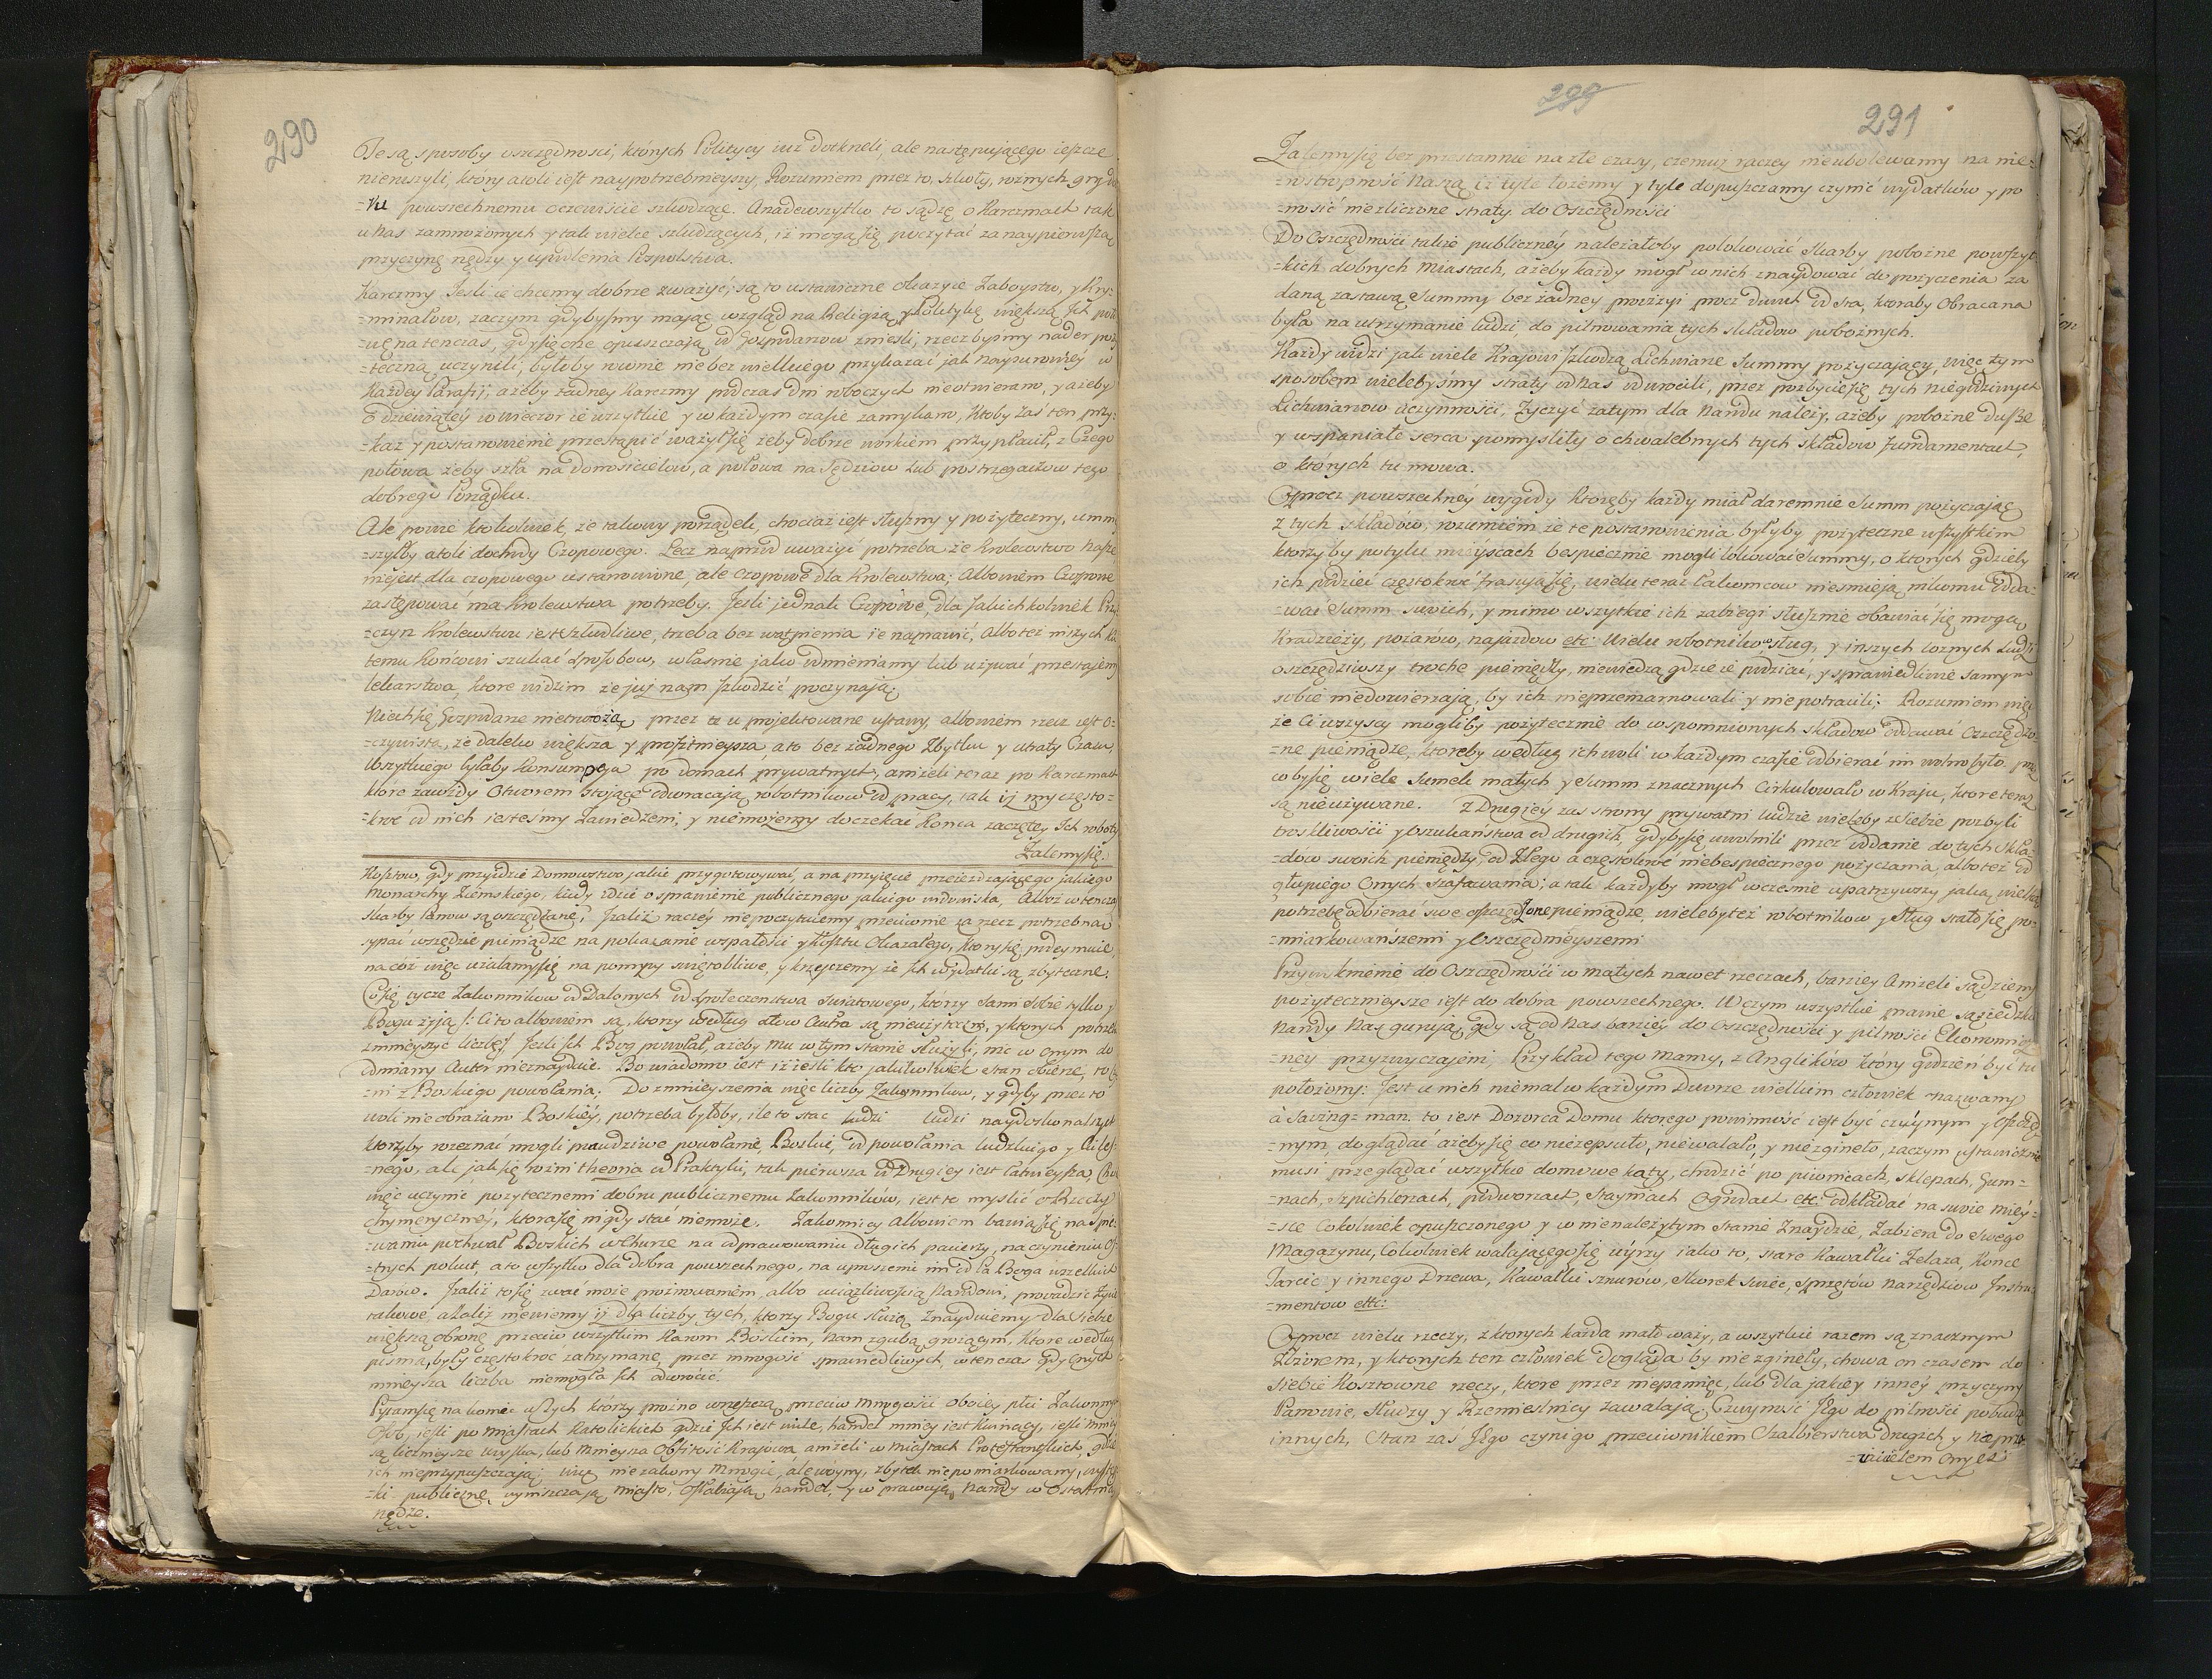 290
Te są sposoby oszczędnosci, których Politycy iuż dotkneli, ale następującego ieszcze
nieruszyli, który atoli iest naypotrzebnieyszy, Rozumiem przez to, szkoły, roznych
-ku powszechnemu oczewiście szkodzące. Anadewszytko to sądzę o Karczmach tak
u Nas zamnożonych y tak wiele szkodzących, iż mogą się poczytać za naypierwszą
przyczynę nędzy y upodlenia Pospolstwa.
Karczmy Jesli ie chcemy dobrze zważyć, są to ustawiczne okazye Zaboystw, y Kry-
-minałow, zaczym gdybysmy mając wzgląd na Religią y Politykę większą Ich
-wę natenczas, gdy się one opuszczają od Gospodarzow zniesli, rzecz bysmy nader poż
-teczną uczynili, byłoby rownie nie bez wielkiego przykazać jak naysurowiey w
Każdey Parafij, ażeby żadney Karczmy podczas Dni roboczych nieotwierano, y ażeby
o dziewiątey w wieczor ie wszytkie y w każdym czasie zamykano, ktoby zaś ten przy-
-kaz y postanowienie przestąpić ważył się żeby dobrze workiem przypłacił, z Czego
połowa żeby szła na donosicielow, a połowa na Sędziow lub postrzegaczow tego
dobrego Porządku.
Ale powie ktokolwiek, że takowy porządek, chociaż iest słuszny y pożyteczny, umni
-szyłby atoli dochody Czopowego. Lecz naprzod uważyć potrzeba że Krolewstwo Nasze
niejest dla czopowego ustanowione, ale czopowe dla Krolewstwa; Albowiem Czopowe
zastępować ma Krolewstwa potrzeby. Jesli jednak Czopowe, dla Jakichkolwiek Prz
-czyn Krolewstwu iest szkodliwe, trzeba bez wątpienia ie naprawić, Albo też inszych ku
temu Końcowi szukać Sposobow, własnie jako odmieniamy lub używać przestajemy
lekarstwa, ktore widzim że już nam szkodzić poczynają.
Niech się Gospodarze nietrwożą przez te u projektowane ustawy, albowiem rzecz iest o-
-czywista, że daleko większa y profitnieysza, a to bez żadnego Zbytku y utraty Czasu,
Wszytkiego byłaby Konsumpcya po domach prywatnych, aniżeli teraz po Karczmach
ktore zawżdy Otworem stojące odwracają robotnikow od pracy, tak iż my często-
-kroć od nich iesteśmy Zawiedzeni, y niemożemy doczekać Konca zaczętey Ich roboty
Zalemysię.
Kosztow, gdy przyidzie Domowstwo jakie przygotowywać, a na przyięcie przeieżdzającego jakiego
Monarchy Ziemskiego, kiedy idzie o sprawienie publicznego jakiego widowiska, Alboż wtenczas
Skarby Panow są oszczędzane, Jzaliż raczey niepoczytujemy przeciwnie za rzecz potrzebną
sypać wszędzie pieniądze na pokazanie wspałości y Kosztu Okazałego, ktory się podeymuie,
na coż więc użalamy się na pompy swiętobliwe, y krzyczemy że Ich wydatki są zbyteczne.
Co się tycze Zakonnikow od Dalonych od społeczenstwa Swiatowego, którzy Sami Sobie tylko y
Bogu żyją /: Ci to albowiem są, ktorzy według słow Autra są nieużyteczni, y ktorych potrzeba
zmnieyszyć liczbę / Jesli Ich Bog powołał, ażeby mu w tym stanie służyli, nic w onym do
odmiany Autor nieznaydzie. Bo wiadomo iest iż iesli kto jakikolwiek stan obierze, to
-ni z Boskiego powołania. Do zmnieyszenia więc liczby Zakonnikow, y gdyby przez to
woli nie obrażano Boskiey, potrzeba byłoby, ile to stac ludzi ludzi naydoskonalszych
ktorzyby rozeznać mogli prawdziwe powołanie Boskie, od powołania ludzkiego y
-nego, ale jak się rożni theoria od Praktyki, tak pierwsza od Drugiey iest łatwieysza, Chcieć
więc uczynić pożytecznemi dobru publicznemu Zakonnikow, iest to myslić o Rzeczy
chymeryczney, ktora się nigdy stać niemoże. Zakonnicy Albowiem bawią się na Spie-
-waniu pochwał Boskich w Churze na odprawowaniu długich pacierzy, na czynieniu O
-trych pokut, a to wszytko dla dobra powszechnego, na uproszeni im od Pa Boga wszelkich
Darow. Jzaliż to się zwać może prożnowaniem, albo uciążliwością Narodom, prowadzić życie
takowe, a Zaliż niewiemy iż dla liczby tych, ktorzy Bogu służą Znayduiemy dla siebie
większą obronę przeciw wszytkim Karom Boskim, Nam zgubą grożącym, ktore według
pisma, były częstokroć zatrzymane, przez mnogość sprawiedliwych, wtenczas gdy onych
mnieysza liczba niemogła Ich odwrocić.
Pytam się na koniec u Tych którzy prożno wrzeszczą przeciw Mnogości oboiey płci Zakonnych
Osob, iesli po Miastach Katolickich gdzie Ich iest wiele, handel mniey iest Kwitnący, iesli mniey
są licznieysze woyska, lub mnieysza Obfitość Krajowa aniżeli w Miastach Protestantskich, gdzie
ich nieprzypuszczają; więc nie zakony mnogie, ale woyny, zbytek niepomiarkowany,
-ki publiczne, wyniszczają Miasto, osłabiają handel, y w prawują Narody w Ostatnią
nędze.
299
291
Zalemysię bez przestannie na złe czasy, czemuż raczey nieubolewamy na nie-
-roztropność Naszą iż tyle łożemy y tyle dopuszczamy czynić wydatków y po
-nosić niezliczone straty do Oszczędności
Do Oszczędności także publiczney należałoby polokować Skarby pobożne powszyt
-kich dobrych Miastach, ażeby każdy mogł w nich znaydować do pożyczenia za
daną zastawą Summy bez żadney prowizyi procz dwuch od sta, któraby Obracana
była na utrzymanie ludzi do pilnowania tych składow pobożnych.
Każdy widzi jak wiele Krajowi szkodzą Lichwiane Summy pożyczający, więc tym
sposobem wielebyśmy straty od Nas odwrocili, przez pozbycie się tych niegodziwych
Lichwiarzow uczynności, życzyć zatym dla Narodu należy, ażeby pobożne dusze
y wspaniałe serca pomysliły o chwalebnych tych składow fundamentach,
o których tu mowa.
Oprocz powszechney wygody ktorąby każdy miał daremnie Summ pożyczając
z tych składów, rozumiem że te postanowienia byłyby pożyteczne wszystkim
ktorzyby po tylu mieyscach bespiecznie mogli lokować Summy, o ktorych gdzieby
ich podzieć częstokroć frasują się, wielu teraz łakomcow niesmieją nikomu odda-
-wać Summ swoich, y mimo wszytkie ich zabiegi słusznie obawiać się mogą
Kradzieży, pożarów, najazdow etc: wielu robotnikow Sług, y inszych roznych Ludzi
oszczędziwszy trochę pieniędzy, niewiedzą gdzie ie podziać, y sprawiedliwie samym
sobie niedowierzają, by ich nieprzemarnowali y nie potracili; Rozumiem więc
że Ci wszyscy mogliby pożytecznie do wspomnionych składow oddawać oszczędzo-
-ne pieniądze, ktoreby według ich woli w każdym czasie odbierać im wolno było. prz
co by się wiele Sumek małych y Summ znacznych Cirkulowało w Kraju, ktore teraz
są nieużywane. Z Drugiey zas strony prywatni ludzie wieleby z siebie pozbyli
troskliwości y Oszukaństwa od drugich, gdyby się uwolnili przez oddanie do tych Skła-
-dów swoich pieniędzy, od Złego a częstokroć niebespiecznego pożyczania, albo też od
głupiego Onych szafowania; a tak każdyby mogł wcześnie upatrzywszy jaką wielką
potrzebę odbierać swe oszczędzone pieniądze, wieleby też robotnikow y Sług stało się po-
-miarkowańszemi y Oszczędnieyszemi
Przywyknienie do Oszczędności w małych nawet rzeczach, barziey Aniżeli sądziemy
pożytecznieysze iest do dobra powszechnego. W czym wszystkie prawie sąsiedzkie
Narody Nas gurują, gdy są od Nas barziey do Oszczędności y pilności Ekonomicz
-ney przyzwyczajeni, Przykład tego Mamy, z Anglików który godzien być tu
położony: Jest u nich niemal w każdym Dworze wielkim człowiek nazwany
à Saving=man. to iest Dozorca Domu ktorego powinność iest być czuynym y oszczę
-nym, doglądać ażeby się co niezepsuło, niewalało, y niezgineło, zaczym ustawicznie
musi przeglądać wszytkie domowe kąty, chodzić po piwnicach, sklepach, Gum-
-nach, Szpichlerzach, podworzach, Staynach Ogrodach etc: odkładać na swoie miey-
-sce Cokolwiek opuszczonego y w nienależytym stanie Znaydzie, Zabiera do Swego
Magazynu, Cokolwiek walającego się uyrzy iako to, stare Kawałki Żelaza, Konce
Tarcic y innego Drzewa, Kawałki sznurów, Skorek Swiec, Sprzętów Narzędziow Instru-
-mentow etc:
Oprocz wielu rzeczy, z ktorych każda mało waży, a wszytkie razem są znacznym
Zbiorem, y ktorych ten człowiek dogląda by nie zgineły, chowa on czasem do
siebie Kosztowne rzeczy, ktore przez niepamięć, lub dla jakiey inney przyczyny
Panowie, Słudzy y Rzemieslnicy zawalają. Czuyność Jego do pilności pobudza
innych, Stan zas Jego czyni go przeciwnikiem Szalbierstwa drugich y Nieprz
-iacielem Onych